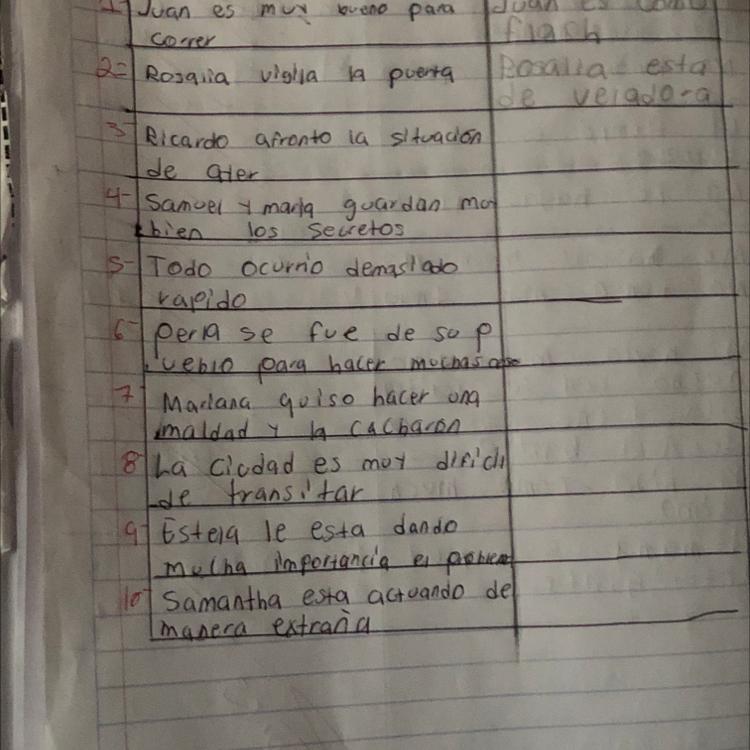 1- Juan es muy bueno para
correr
Juan es como
flash
2= Rosalia vigila la puerta
Rosalia esta
de veladora
3- Ricardo afronto la situación
de ayer
4- Samuel y maria guardan muy
bien los secretos
5- Todo ocurrio demasiado
rapido
6- perla se fue de su p
ueblo para hacer muchas
7- Mariana quiso hacer una
maldad y la cacharon
8- La Ciudad es muy dificil
de transitar
9- Estela le esta dando
mucha importancia el
10- Samantha esta actuando de
manera extraña